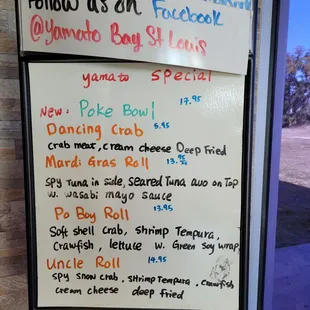 Follow us on
Facebook
@Yamato Bay St Louis
yamato Special
17.95
New: Poke Bowl
Dancing Crab 5.95
Crab meat, cream cheese Deep Fried
Mardi Gras Roll 13.95
Spy Tuna in side, Seared Tuna avo on Top
w. wasabi mayo sauce
Po Boy Roll 13.95
Soft shell crab, shrimp Tempura,
Crawfish, lettuce w. Green Soy wrap
Uncle Roll 14.95
Spy snow crab, shrimp Tempura, crawfish
cream cheese deep fried